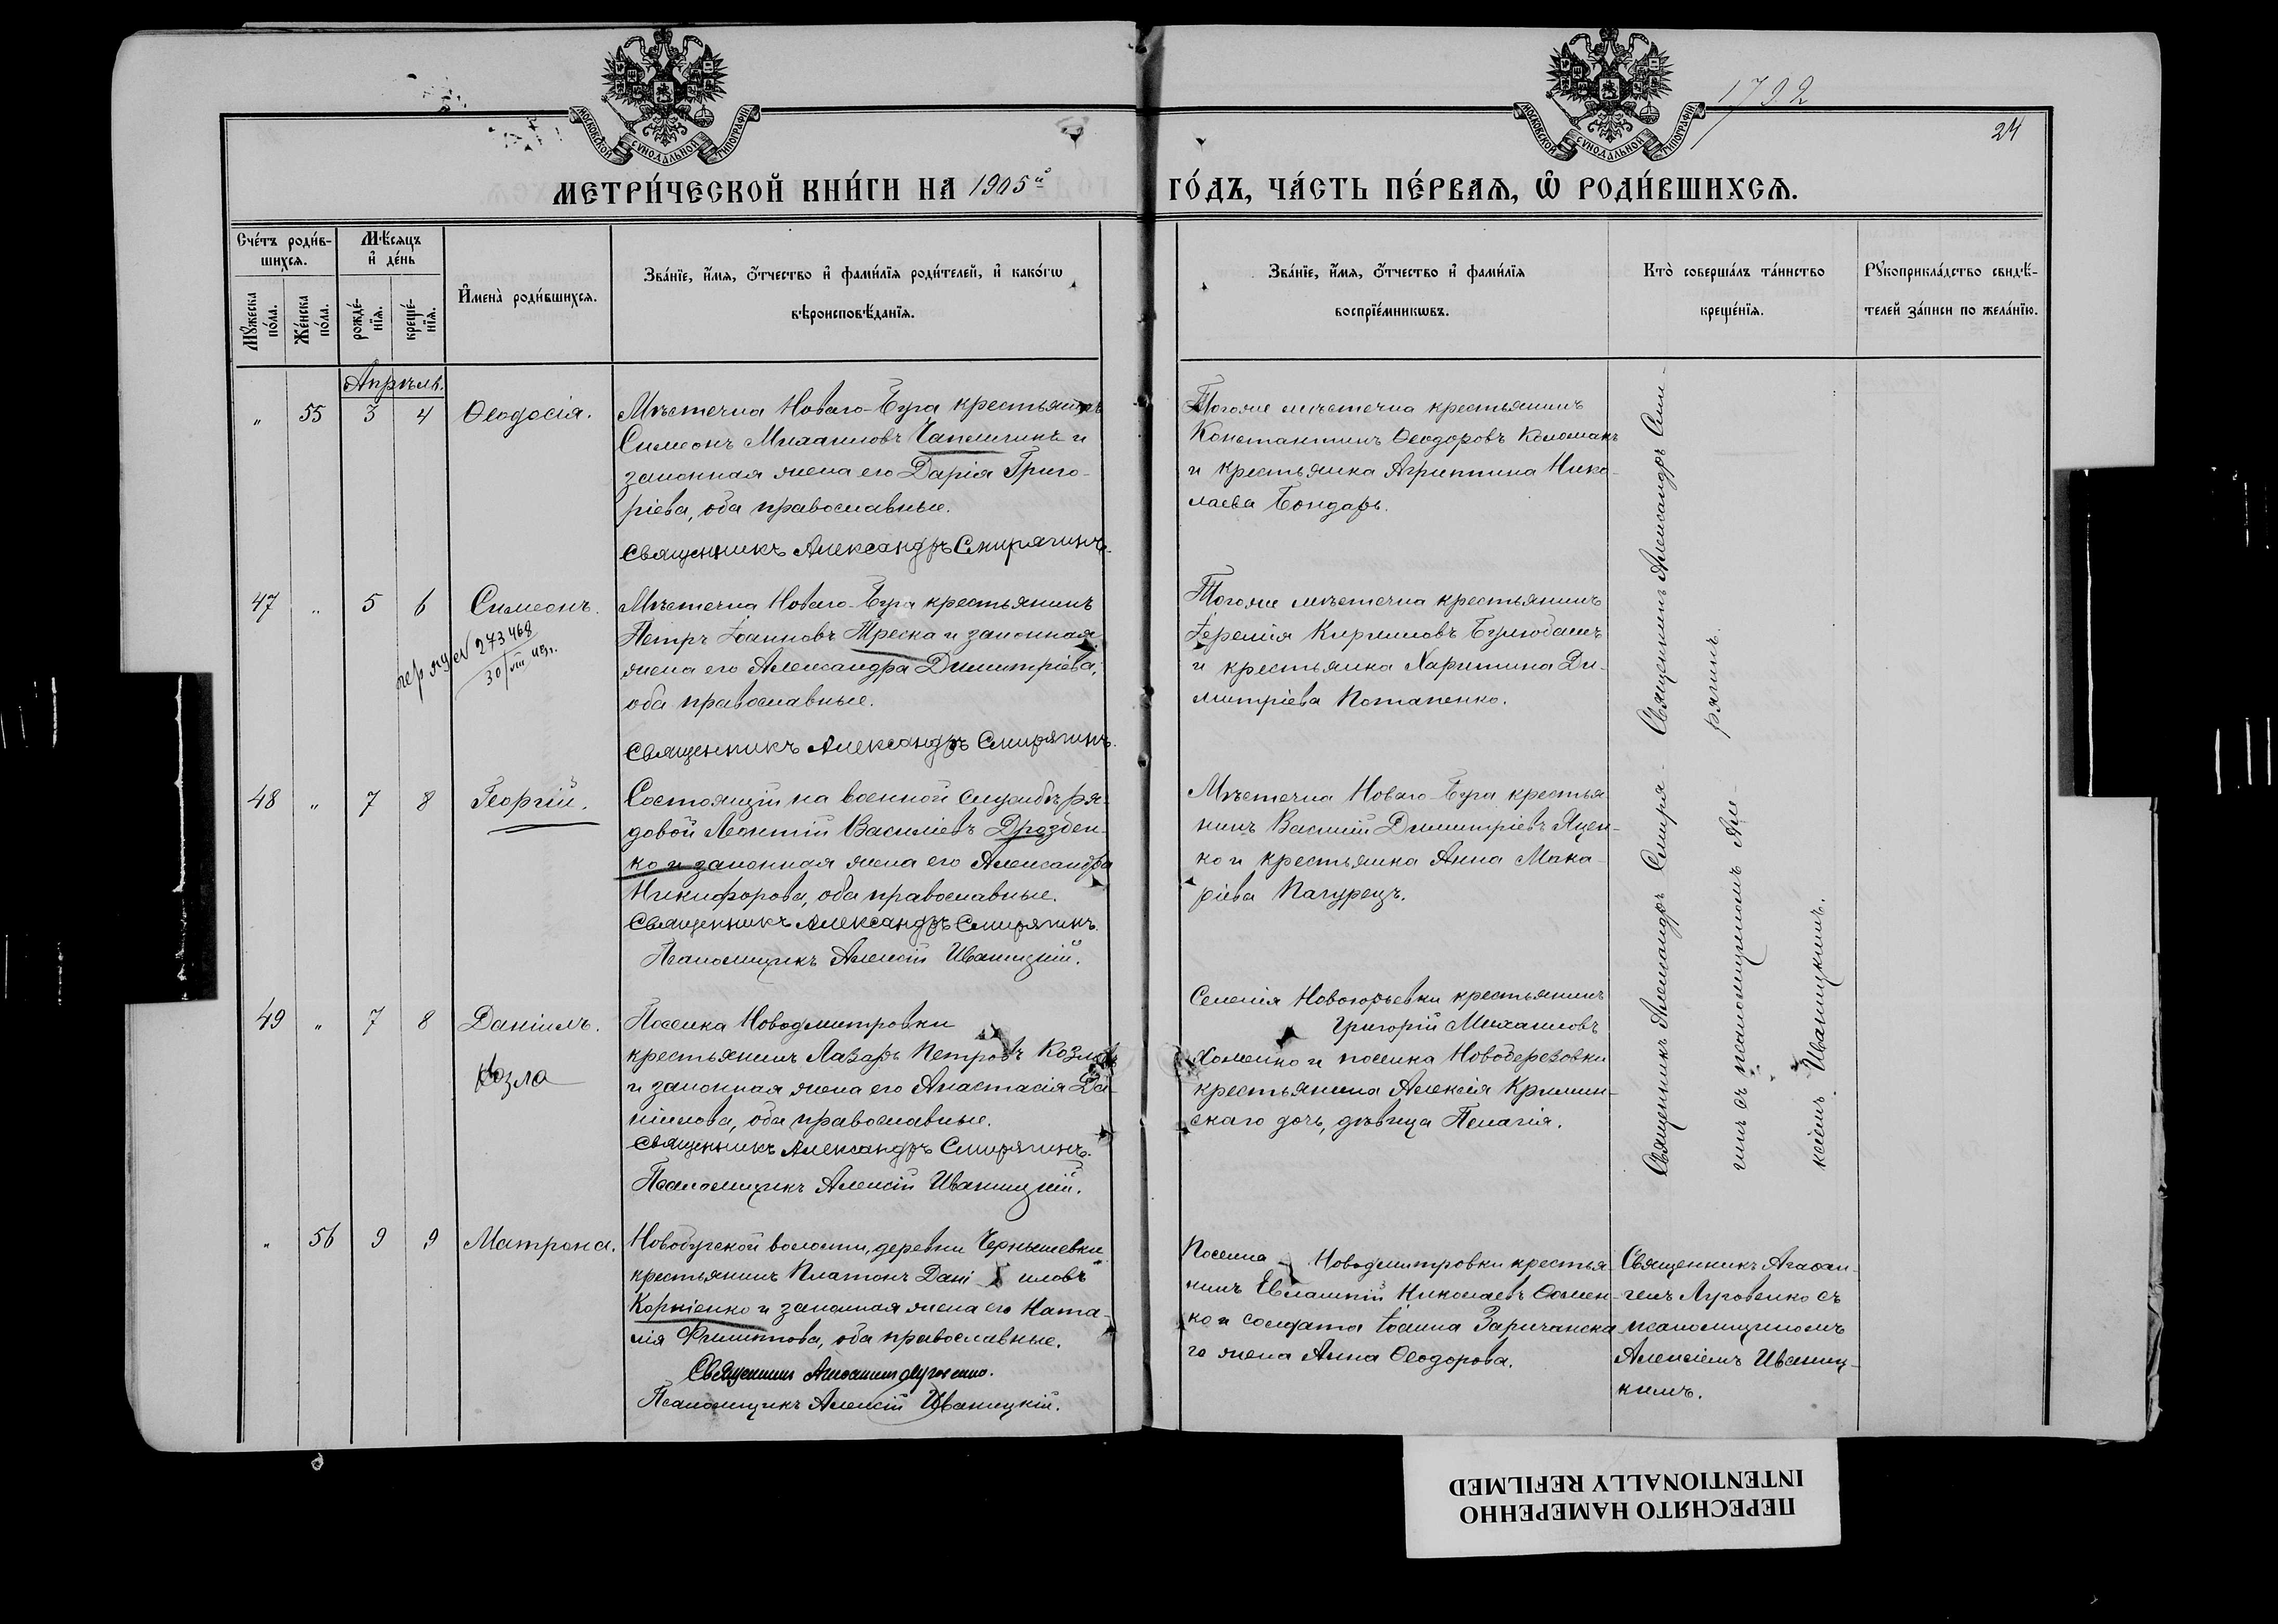 МОСКОВСКОЙ СѴНОДАЛЬНОЙ ТИПОГРАФІИ
МОСКОВСКОЙ СѴНОДАЛЬНОЙ ТИПОГРАФІИ
1792
24
МЕТРИ́ЧЕСКОЙ КНИ́ГИ НА 1905й
ГО́ДЪ, ЧА́СТЬ ПЕ́РВАѦ, Ѿ РОДИ́ВШИХСѦ.
Сче́тъ роди́в-
шихсѧ.
Мѣ́сѧцъ
и҆ де́нь
Мꙋ́жеска
по́ла.
Же́нска
по́ла.
рожде́-
нїѧ.
креще́-
нїѧ.
И҆мена̀ роди́вшихсѧ.
Зва́нїе, и҆́мѧ, ѻ҆́тчество и҆ фами́лїѧ роди́телей, и҆ како́гѡ
вѣроисповѣ́данїѧ.
Зва́нїе, и҆́мѧ, ѻ҆́тчество и҆ фами́лїѧ
воспрїе́мникѡвъ.
Кто̀ соверша́лъ та́инство
креще́нїѧ.
Рꙋкоприкла́дство свидѣ́-
телей за́писи по жела́нїю.
Апрѣль.
" 55 3 4 Ѳеодосія.
Мѣстечка Новаго-Буга крестьянинъ
Симеонъ Михаиловъ Чаплыгинъ и
законная жена его Дарія Григо-
ріева, оба православные.
Священникъ Александръ Смирягинъ.
Тогоже мѣстечка крестьянинъ
Константинъ Ѳеодоровъ Коломакъ
и крестьянка Агриппина Нико-
лаева Бондарь.
Священникъ Александръ Сми-
рягинъ.
47 " 5 6 Симеонъ.
273468
30/VIII
Мѣстечка Новаго-Буга крестьянинъ
Петръ Іоанновъ Треска и законная
жена его Александра Димитріева,
оба православные.
Священникъ Александръ Смирягинъ.
Тогоже мѣстечка крестьянинъ
Іеремія Кирилловъ
и крестьянка Харитина Ди-
митріева Потапенко.
48 " 7 8 Георгій.
Состоящій на военной службѣ ря-
довой Леонтій Василіевъ Дрозден-
ко и законная жена его Александра
Никифорова, оба православные.
Священникъ Александръ Смирягинъ.
Псаломщикъ Алексій Иваницкій.
Мѣстечка Новаго-Буга крестья-
нинъ Василій Димитріевъ Яцен-
ко и крестьянка Анна Мака-
ріева Пагурецъ.
Священникъ Александръ Смиря-
гинъ съ псаломщикомъ Але-
ксіемъ Иваницкимъ.
49 " 7 8 Даніилъ.
Козла
Поселка Новодмитровки
крестьянинъ Лазарь Петровъ Козловъ
и законная жена его Анастасія Да-
ніилова, оба православные.
Священникъ Александръ Смирягинъ.
Псаломщикъ Алексій Иваницкій.
Селенія Новоюрьевки крестьянинъ
Григорій Михаиловъ
Хоменко и поселка Новоберезовки
крестьянина Алексія Кримин-
скаго дочь, дѣвица Пелагія.
" 56 9 9 Матрона.
Новобугской волости, деревни Чернышевки
крестьянинъ Платонъ Даніиловъ
Корніенко и законная жена его Ната-
лія Филиппова, оба православные.
Священникъ Агаѳангелъ Луговенко.
Псаломщикъ Алексій Иваницкій.
Поселка Новодмитровки крестья-
нинъ Евлампій Николаевъ Ѳомен-
ко и солдата Іоанна Заричанска-
го жена Анна Ѳеодорова.
Священникъ Агаѳан-
гелъ Луговенко съ
псаломщикомъ
Алексіемъ Иваниц-
кимъ.
ПЕРЕСНЯТО НАМЕРЕННО
INTENTIONALLY REFILMED